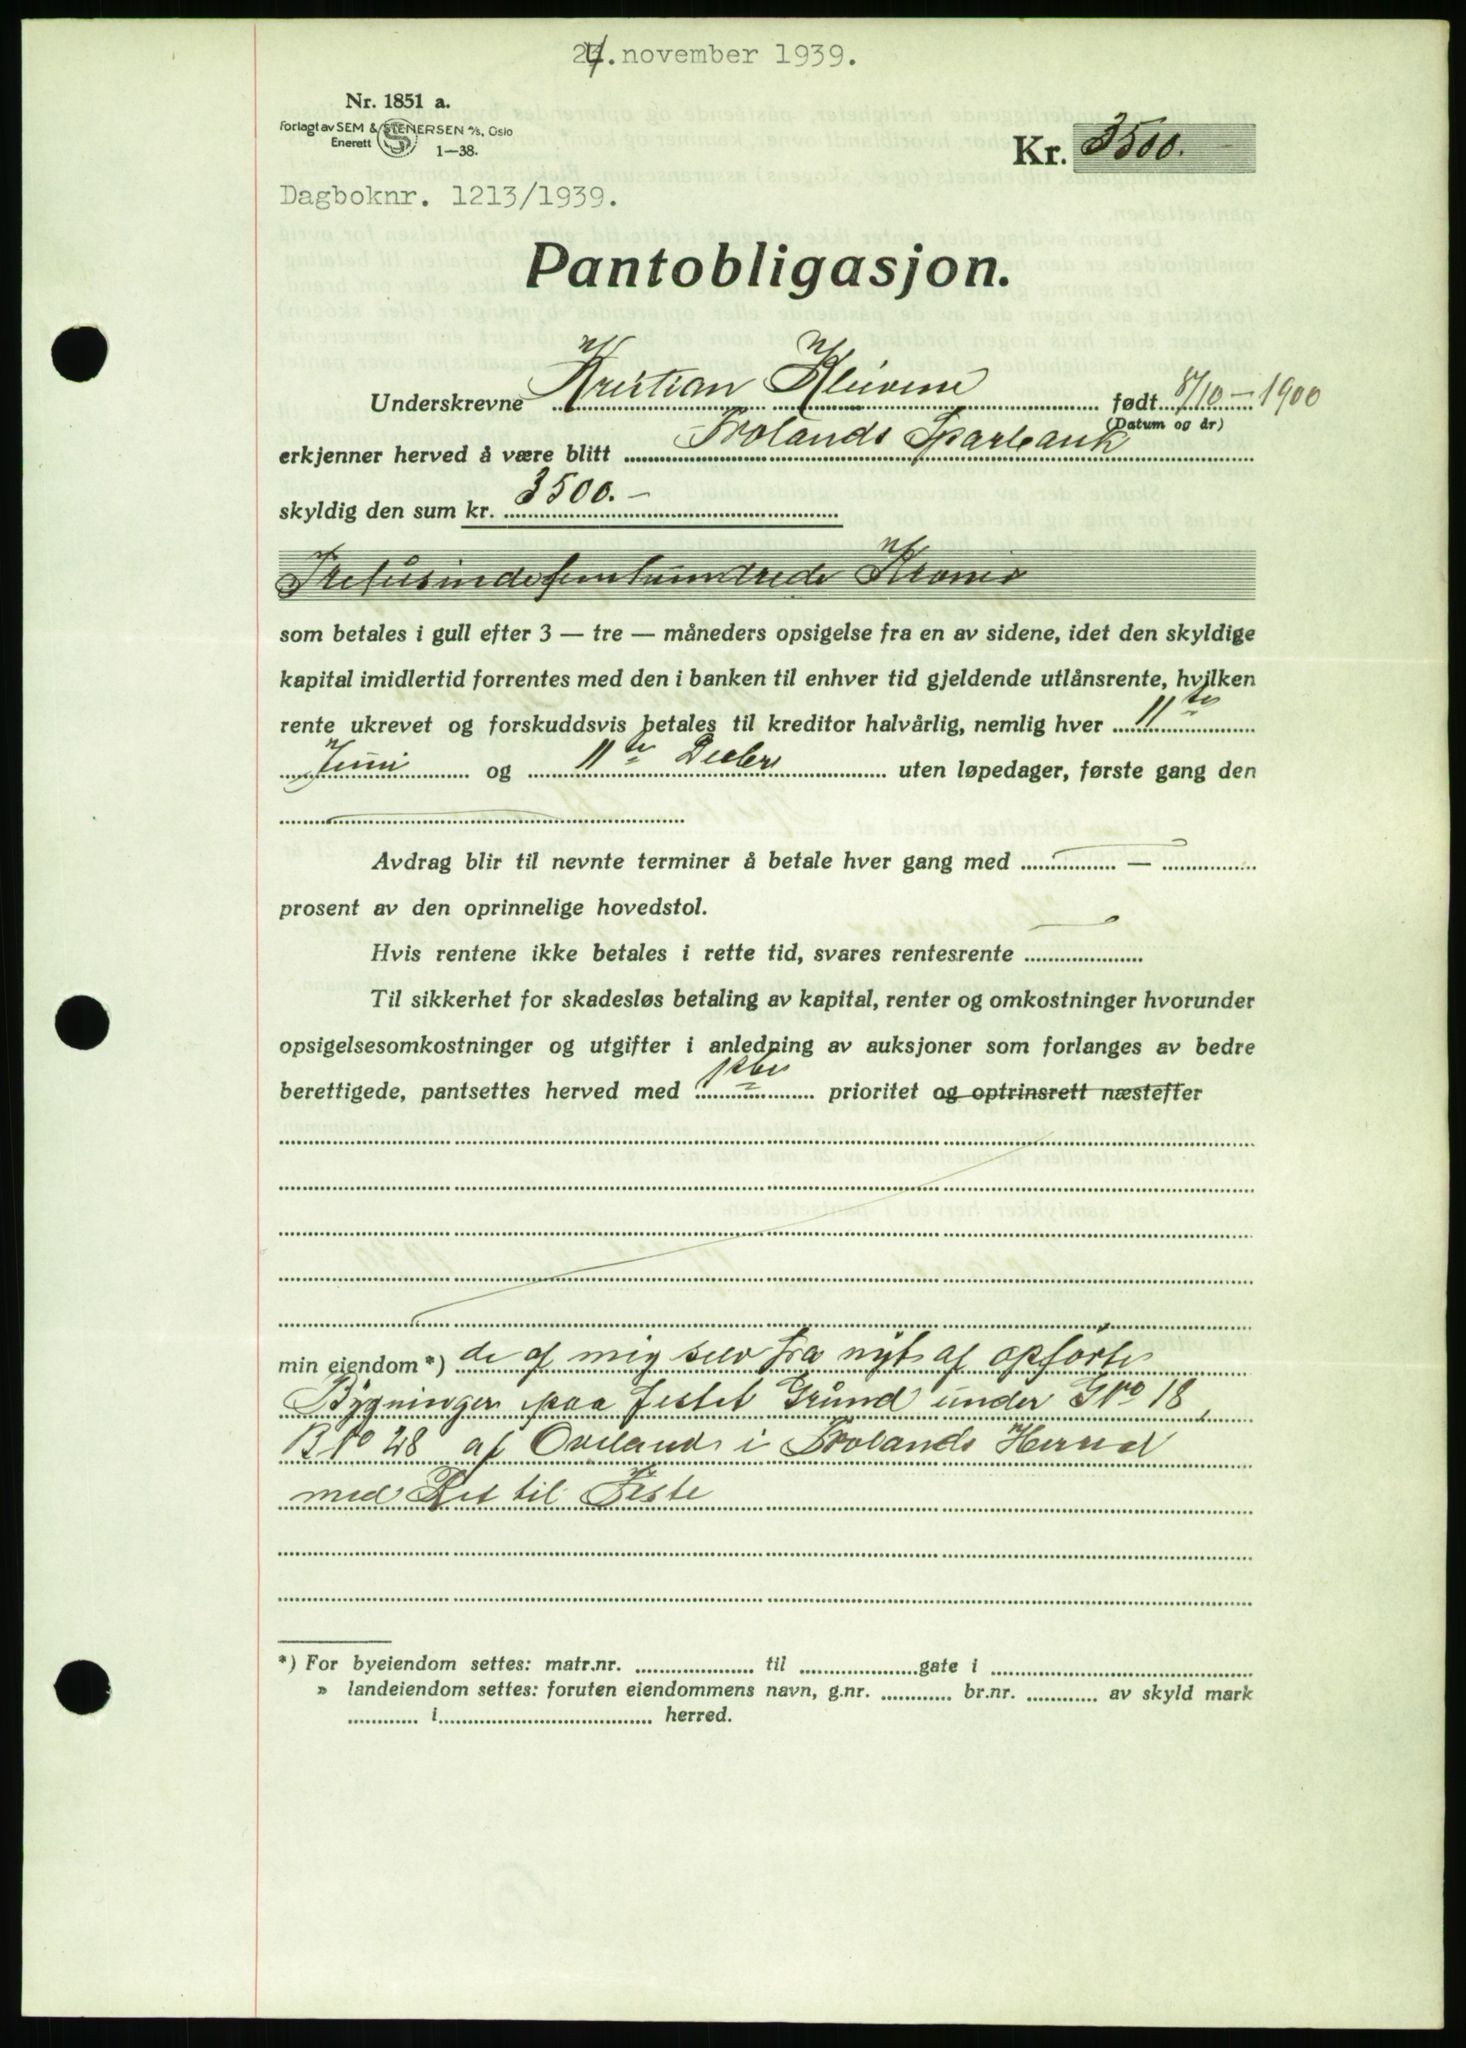 24. november 1939.
Nr. 1851 a.
Forlagt av SEM & STENERSEN A/S, Oslo
Enerett
1—38.
Kr. 3500.-
Dagboknr. 1213/1939.
Pantobligasjon.
Underskrevne Kristian Kleivene født 8/10 - 1900
(Datum og år)
erkjenner herved å være blitt Frolands Sparebank
skyldig den sum kr. 3500.-
Tretusindefemhundrede Kroner
som betales i gull efter 3 — tre — måneders opsigelse fra en av sidene, idet den skyldige
kapital imidlertid forrentes med den i banken til enhver tid gjeldende utlånsrente, hvilken
rente ukrevet og forskuddsvis betales til kreditor halvårlig, nemlig hver 11te
Juni og 11te Decber uten løpedager, første gang den
Avdrag blir til nevnte terminer å betale hver gang med —
prosent av den oprinnelige hovedstol.
Hvis rentene ikke betales i rette tid, svares rentesrente
Til sikkerhet for skadesløs betaling av kapital, renter og omkostninger hvorunder
opsigelsesomkostninger og utgifter i anledning av auksjoner som forlanges av bedre
berettigede, pantsettes herved med 1ste prioritet og optrinsrett næstefter
min eiendom *) de af mig selv fra nyt af opførte
Bygninger paa festet Grund under G No 18,
B No 28 af Oveland i Frolands Herred
med Ret til Feste
*) For byeiendom settes: matr.nr. til gate i
» landeiendom settes: foruten eiendommens navn, g.nr. br.nr. av skyld mark
i herred.